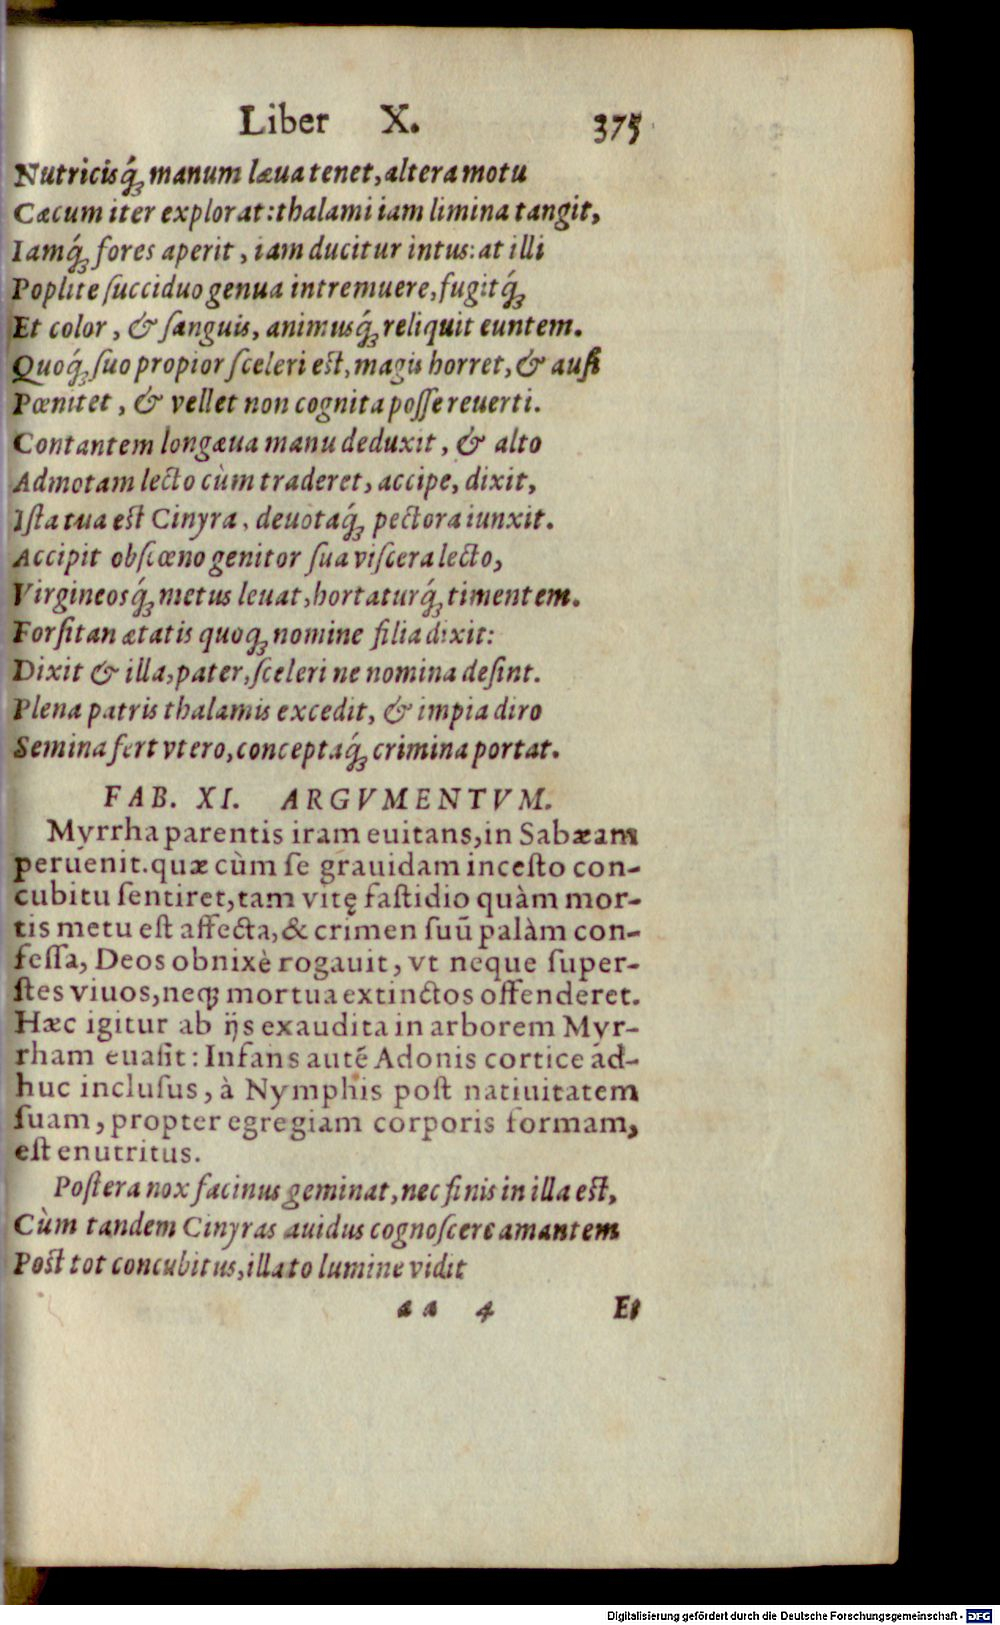 Liber X. 375
Nutricisq́; manum læua tenet, altera motu
Cæcum iter explorat: thalami iam limina tangit,
Iamq́; fores aperit, iam ducitur intus: at illi
Poplite ſucciduo genua intremuere, fugitq́;
Et color, & ſanguis, animusq́; reliquit euntem.
Quoq́; ſuo propior ſceleri est, magis horret, & auſi
Pœnitet, & vellet non cognita poſſe reuerti.
Contantem longæua manu deduxit, & alto
Admotam lecto cùm traderet, accipe, dixit,
Iſta tua est Cinyra, deuotaq́; pectora iunxit.
Accipit obſcœno genitor ſua viſcera lecto,
Virgineosq́; metus leuat, hortaturq́; timentem.
Forſitan ætatis quoq; nomine filia dixit:
Dixit & illa, pater, ſceleri ne nomina deſint.
Plena patris thalamis excedit, & impia diro
Semina fert vtero, conceptaq́; crimina portat.
FAB. XI. ARGVMENTVM.
Myrrha parentis iram euitans, in Sabæam
peruenit. quæ cùm ſe grauidam inceſto con-
cubitu ſentiret, tam vitę faſtidio quàm mor-
tis metu eſt affecta, & crimen ſuū palàm con-
feſſa, Deos obnixè rogauit, vt neque ſuper-
ſtes viuos, neq; mortua extinctos offenderet.
Hæc igitur ab ijs exaudita in arborem Myr-
rham euaſit: Infans autē Adonis cortice ad-
huc incluſus, à Nymphis poſt natiuitatem
ſuam, propter egregiam corporis formam,
eſt enutritus.
Poſtera nox facinus geminat, nec finis in illa est,
Cùm tandem Cinyras auidus cognoſcere amantem
Post tot concubitus, illato lumine vidit
aa 4 Et
Digitalisierung gefördert durch die Deutsche Forschungsgemeinschaft - DFG